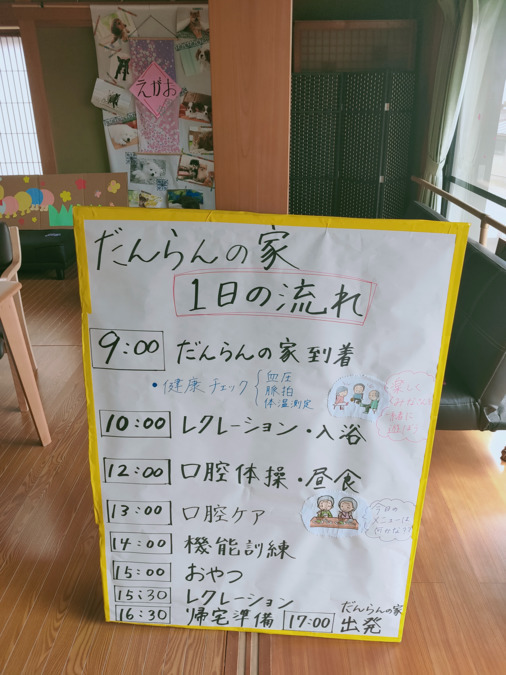 えがお
だんらんの家
1日の流れ
9:00 だんらんの家到着
・健康チェック { 血圧
脈拍
体温測定
10:00 レクレーション・入浴
楽しく
みんなで
一緒に
12:00 口腔体操・昼食
13:00 口腔ケア
今日の
メニューは
何かな
14:00 機能訓練
15:00 おやつ
15:30 レクレーション
16:30 帰宅準備 17:00 だんらんの家
出発